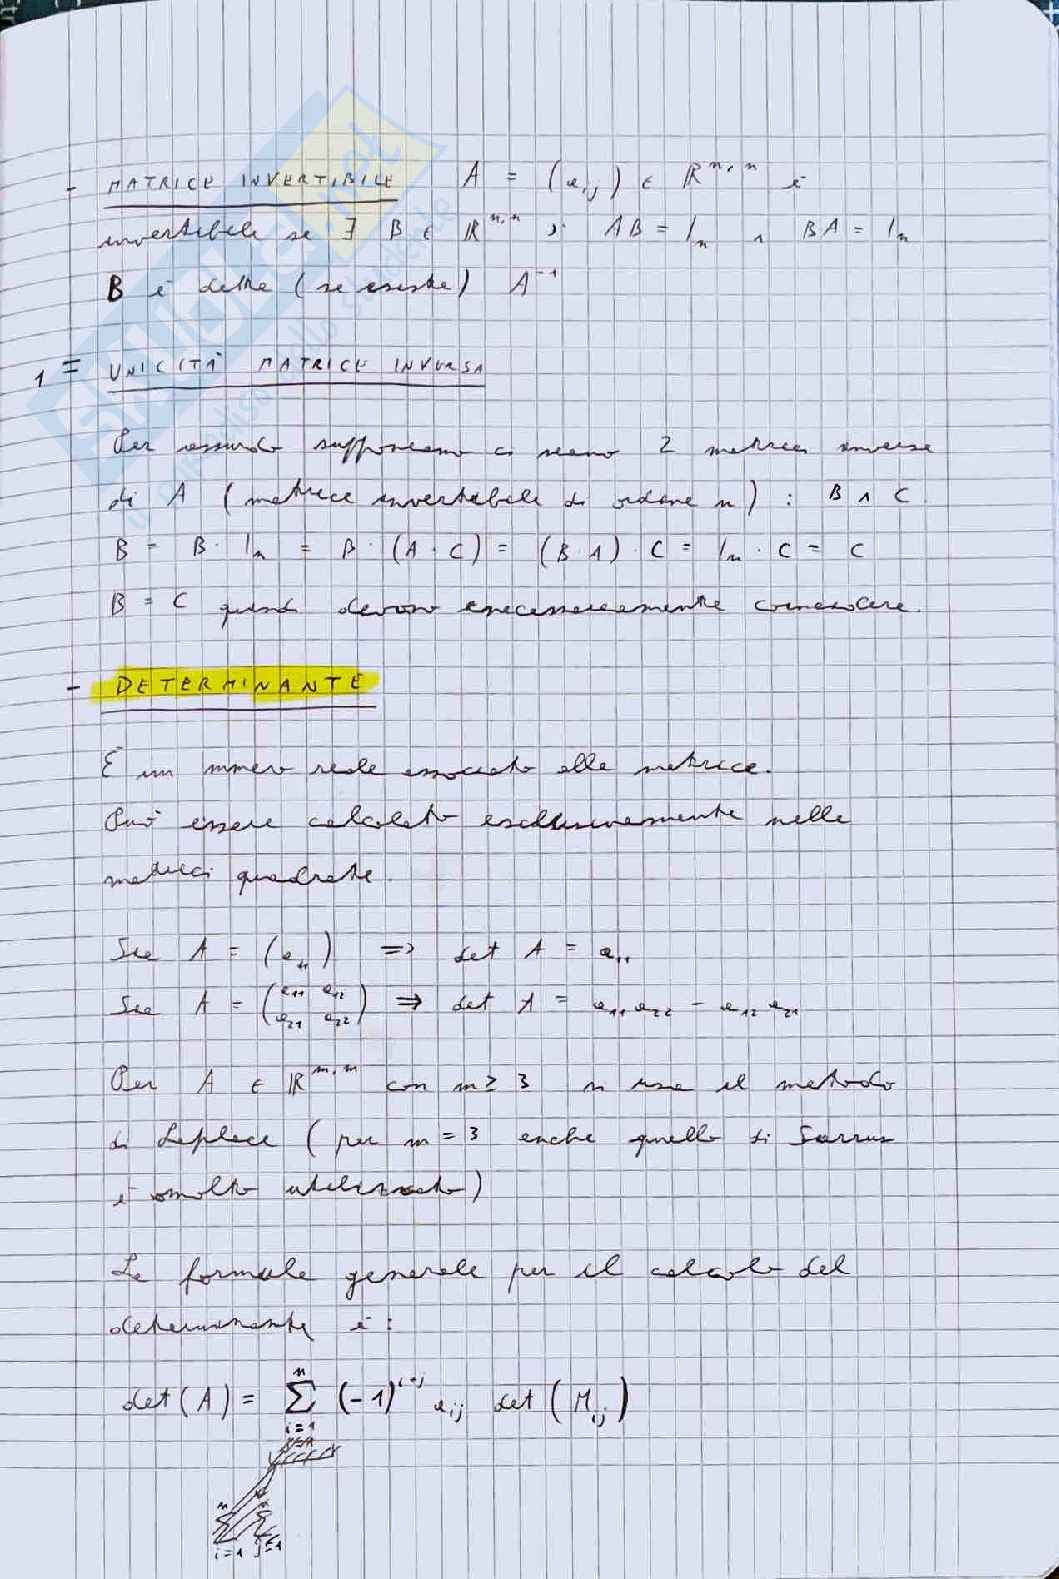 - MATRICE INVERTIBILE A = (a_ij) ∈ ℝ^n,n è
invertibile se ∃ B ∈ ℝ^n,n : AB = I_n ∧ BA = I_n
B è detta (se esiste) A^-1
1 - UNICITÀ MATRICE INVERSA
Per assurdo supponiamo ci siano 2 matrici inverse
di A (matrice invertibile di ordine n) : B ∧ C
B = B · I_n = B · (A · C) = (B · A) · C = I_n · C = C
B = C quindi devono necessariamente coincidere.
- DETERMINANTE
È un numero reale associato alla matrice.
Può essere calcolato esclusivamente nelle
matrici quadrate.
Sia A = (a_11) => det A = a_11
Sia A = (a_11 a_12
a_21 a_22) => det A = a_11 a_22 - a_12 a_21
Per A ∈ ℝ^n,n con n ≥ 3 si usa il metodo
di Laplace (per n = 3 anche quello di Sarrus
è molto utilizzato)
La formula generale per il calcolo del
determinante è:
det(A) = ∑ n i=1 (-1)^i+j a_ij det(M_ij)
n
i=1 j=1